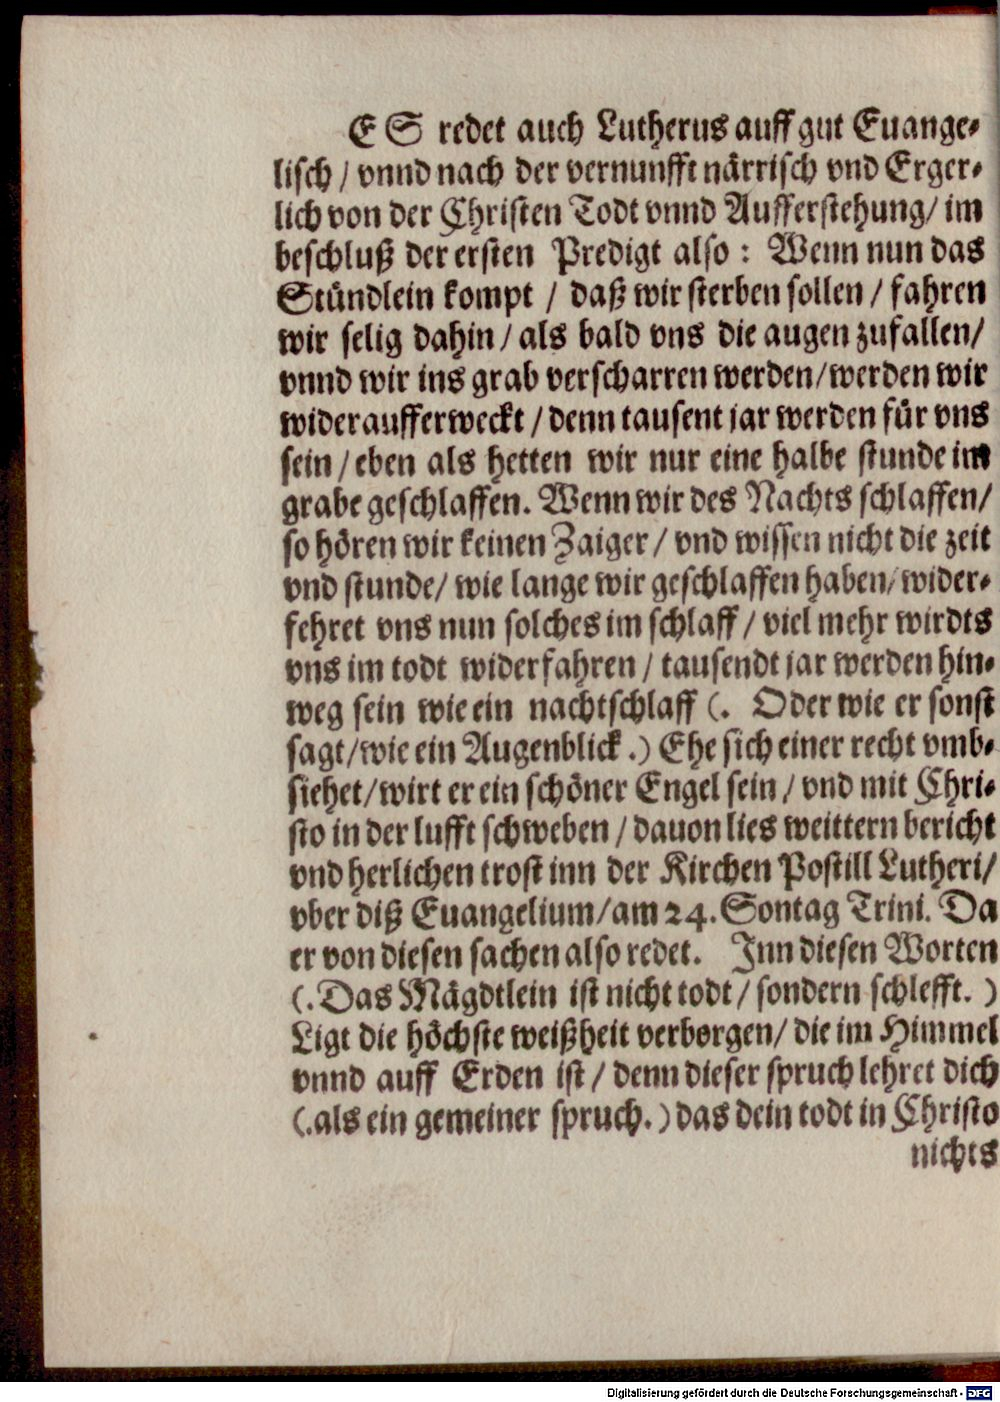 E S redet auch Lutherus auff gut Euange-
lisch / vnnd nach der vernunfft närrisch vnd Erger-
lich von der Christen Todt vnnd Aufferstehung / im
beschluß der ersten Predigt also : Wenn nun das
Stündlein kompt / daß wir sterben sollen / fahren
wir selig dahin / als bald vns die augen zufallen /
vnnd wir ins grab verscharren werden / werden wir
wider aufferweckt / denn tausent jar werden für vns
sein / eben als hetten wir nur eine halbe stunde im
grabe geschlaffen. Wenn wir des Nachts schlaffen /
so hören wir keinen Zaiger / vnd wissen nicht die zeit
vnd stunde / wie lange wir geschlaffen haben / wider-
fehret vns nun solches im schlaff / viel mehr wirdts
vns im todt widerfahren / tausendt jar werden hin-
weg sein wie ein nachtschlaff (. Oder wie er sonst
sagt / wie ein Augenblick .) Ehe sich einer recht vmb-
siehet / wirt er ein schöner Engel sein / vnd mit Chri-
sto in der lufft schweben / dauon lies weittern bericht
vnd herlichen trost inn der Kirchen Postill Lutheri /
vber diß Euangelium / am 24. Sontag Trini. Da
er von diesen sachen also redet. Inn diesen Worten
(. Das Mägdtlein ist nicht todt / sondern schlefft. )
Ligt die höchste weißheit verborgen / die im Himmel
vnnd auff Erden ist / denn dieser spruch lehret dich
(. als ein gemeiner spruch. ) das dein todt in Christo
nichts
Digitalisierung gefördert durch die Deutsche Forschungsgemeinschaft - DFG